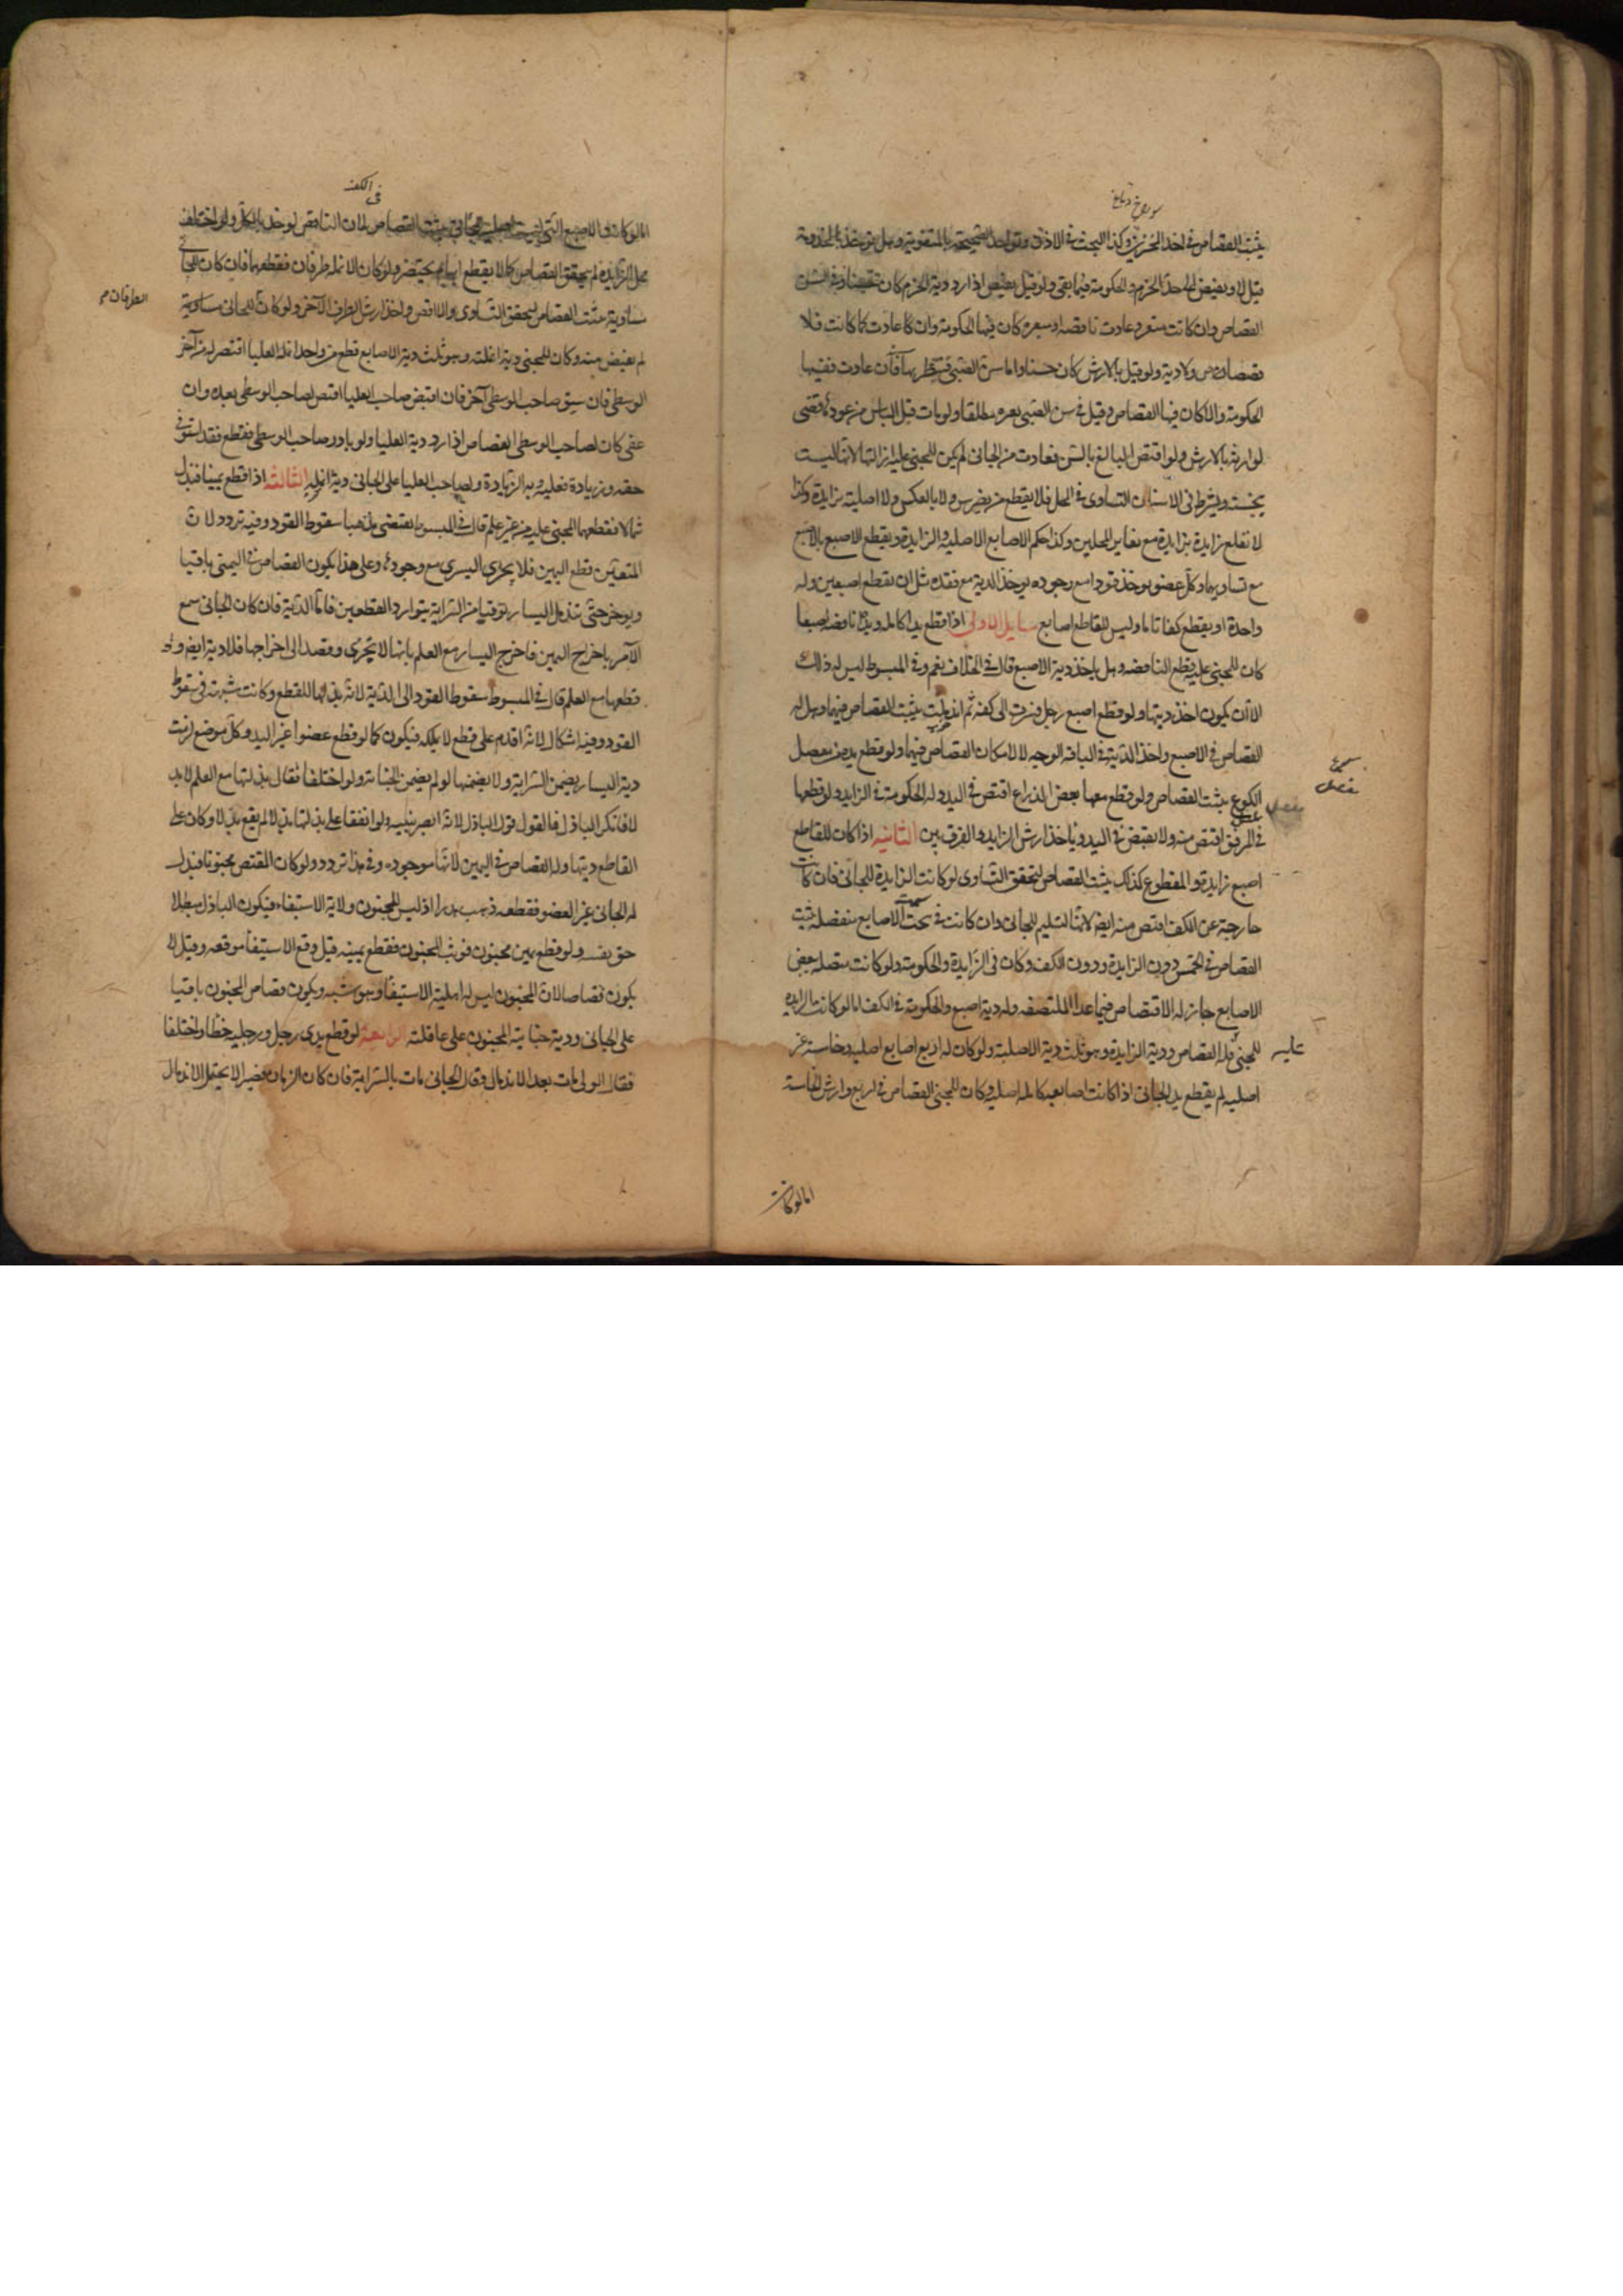 يثبت القصاص في احد المنخرين وكذا البحث في الاذن وتوخذ الصحيحة بالمثقوبة وهل توخذ بالمخرومة
قيل لا ويقتص الى حد الخرم والحكومة فيما بقى ولو قيل يقتص اذا رد دية الخرم كان حسنا وفي السن
القصاص وان كانت سن مثغر وعادت ناقصة او متغيرة كان فيها الحكومة وان عادت كما كانت فلا
قصاص ولا دية ولو قيل بالارش كان حسنا واما سن الصبي فينتظر بها فان عادت ففيها
الحكومة والا كان فيها القصاص وقيل في سن الصبي بعير مطلقا ولو مات قبل الياس من عودها قضى
لوارثه بالارش ولو اقتص البالغ بالسن فعادت من الجاني لم يكن للمجني عليه ازالتها لانها ليست
بجنسه ويشترط في الاسنان التساوي في المحل فلا يقطع من بضرس ولا بالعكس ولا اصلية بزايدة وكذا
لا تقلع زايدة بزايدة مع تغاير المحلين وكذا حكم الاصابع الاصلية والزايدة ويقطع الاصبع بالاصبع
مع تساويهما وكل عضو يوخذ قودا مع وجوده يوخذ الدية مع فقده مثل ان يقطع اصبعين وله
واحدة او يقطع كفا تاما وليس للقاطع اصابع مسايل الاولى اذا قطع يدا كاملة ويده ناقصة اصبعا
كان للمجني عليه قطع الناقصة وهل ياخذ دية الاصبع قال في الخلاف نعم وفي المبسوط ليس له ذلك
الا ان يكون اخذ ديتها ولو قطع اصبع رجل فسرت الى كفه ثم اندملت يثبت القصاص فيهما وهل له
القصاص في الاصبع واخذ الدية في الباقي الوجه لا لامكان القصاص فيهما ولو قطع يده من مفصل
الكوع يثبت القصاص ولو قطع معها بعض الذراع اقتص في اليد وله الحكومة في الزايد ولو قطعها
في المرفق اقتص منه ولا يقتص في اليد وياخذ ارش الزايد والفرق بين الثانية اذا كان للقاطع
اصبع زايدة وللمقطوع كذلك يثبت القصاص لتحقق التساوي ولو كانت الزايدة للجاني فان كانت
خارجة عن الكف اقتص منه ايضا لانها تسلم للجاني وان كانت في سمت الاصابع منفصلة يثبت
القصاص في الخمس دون الزايدة ودون الكف وكان في الزايدة والحكومة ولو كانت متصلة ببعض
الاصابع جاز له الاقتصاص فيما عدا الملتصقة وله دية اصبع والحكومة في الكف اما لو كانت الزايدة
للمجني عليه فله القصاص ودية الزايدة وهو ثلث دية الاصلية ولو كان له اربع اصابع اصلية وخامسة غير
اصلية لم يقطع يد الجاني اذا كانت اصابعه كاملة اصلية وكان للمجني القصاص في اربع وارش الخامسة
اما لو كانت
في الكف
اما لو كانت الاصبع التي ليست اصلية للجاني يثبت القصاص لان الناقص يوخذ بالكامل ولو اختلف
محل الزايدة لم يتحقق القصاص كما لا يقطع ابهام بخنصر ولو كان لانملة طرفان فقطعهما فان كان للجاني
مساوية يثبت القصاص لتحقق التساوي والا اقتص واخذ ارش الطرف الآخر ولو كان للجاني مساوية
الطرفان
لم يقتص منه وكان للمجني دية انملته وهو ثلث دية الاصابع قطع من واحد انملة العليا اقتص له من آخر
الوسطى فان سبق صاحب الوسطى آخر فان اقتص صاحب العليا اقتص لصاحب الوسطى بعده وان
عفى كان لصاحب الوسطى القصاص اذا رد دية العليا ولو بادر صاحب الوسطى فقطع فقد استوفى
حقه وزيادة فعليه دية الزيادة ولصاحب العليا على الجاني دية انملة الثالثة اذا قطع يمينا فبذل
شمالا فقطعها المجني عليه من غير علم قال في المبسوط يقتضي مذهبنا سقوط القود وفيه تردد لان
المتعين قطع اليمين فلا يجزي اليسرى مع وجودها وعلى هذا يكون القصاص في اليمنى باقيا
ويؤخر حتى تندمل اليسار توقيا من السراية بتوارد القطعين فاما الدية فان كان الجاني سمع
الآمر باخراج اليمين فاخرج اليسار مع العلم بانها لا تجزي وقصد الى اخراجها فلا دية ايضا ولو
قطعها مع العلم قال في المبسوط سقوط القود الى الدية لانه بذلها للقطع وكانت شبهة في سقوط
القود وفيه اشكال لانه اقدم على قطع لا يملكه فيكون كما لو قطع عضوا غير اليد وكل موضع لزمت
دية اليسار يضمن السراية ولا يضمنها لو لم يضمن الجناية ولو اختلفا فقال بذلتها مع العلم لا بد
لا فانكر الباذل فالقول قول الباذل لانه ابصر بنيته ولو اتفقا على بذلها بدلا لم يقع بدلا وكان على
القاطع ديتها وله القصاص في اليمين لانها موجودة وفي هذا تردد ولو كان المقتص مجنونا فبذل
له الجاني غير العضو فقطعه ذهب هدرا اذ ليس للمجنون ولاية الاستيفاء فيكون الباذل مبطلا
حق نفسه ولو قطع يمين مجنون فوثب المجنون فقطع يمينه قيل وقع الاستيفاء موقعه وقيل لا
يكون قصاصا لان المجنون ليس له اهلية الاستيفاء وهو اشبه ويكون قصاص المجنون باقيا
على الجاني ودية جناية المجنون على عاقلته الرابعة لو قطع يدى رجل ورجليه خطأ واختلفا
فقال الولى مات بعد الاندمال وقال الجاني مات بالسراية فان كان الزمان قصيرا لا يحتمل الاندمال